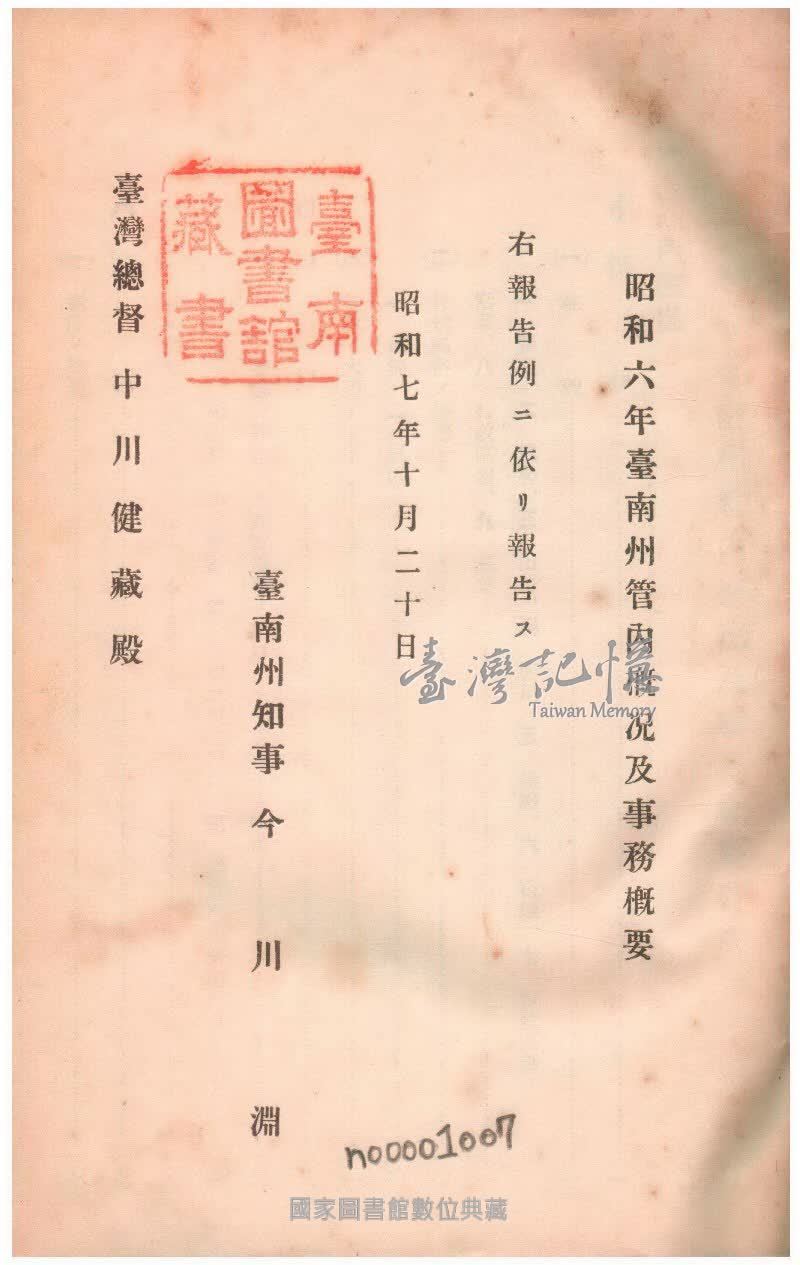 昭和六年臺南州管內概況及事務概要
右報告例ニ依リ報告ス
昭和七年十月二十日
臺南州知事 今川淵
臺灣總督 中川健藏殿
臺南
圖書館
藏書
臺灣記憶
Taiwan Memory
n00001007
國家圖書館數位典藏